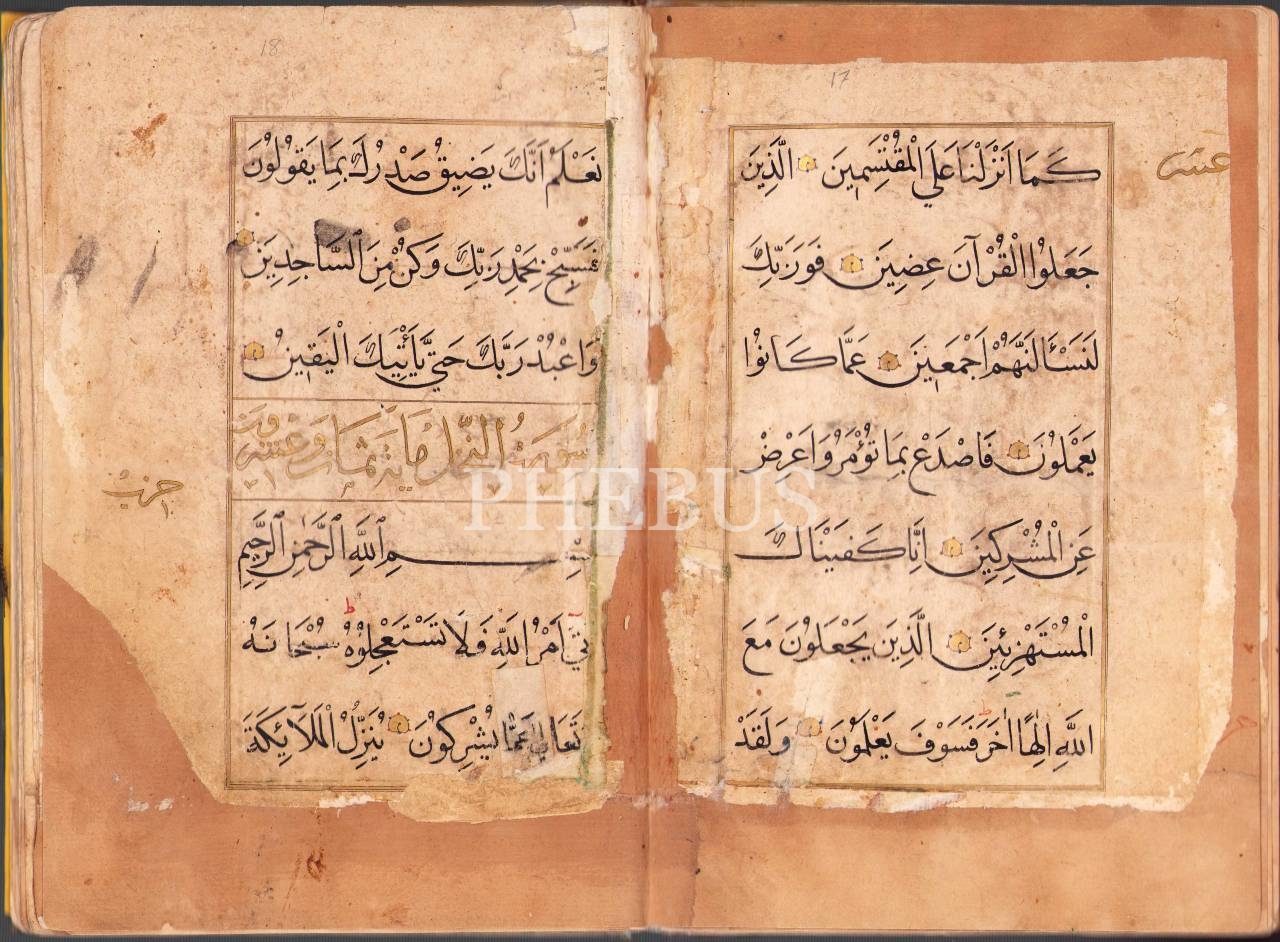 17
كَمَا اَنْزَلْنَا عَلَي الْمُقْتَسِمِينَ الَّذِينَ
عشر
جَعَلُوا الْقُرْآنَ عِضِينَ فَوَرَبِّكَ
لَنَسْئَالَنَّهُمْ اَجْمَعِينَ عَمَّا كَانُوا
يَعْمَلُونَ فَاصْدَعْ بِمَا تُؤْمَرُ وَاَعْرِضْ
عَنِ الْمُشْرِكِينَ اِنَّا كَفَيْنَاكَ
الْمُسْتَهْزِئِينَ الَّذِينَ يَجْعَلُونَ مَعَ
اللَّهِ اِلٰهًا اٰخَرَ فَسَوْفَ يَعْلَمُونَ وَلَقَدْ
18
نَعْلَمُ اَنَّكَ يَضِيقُ صَدْرُكَ بِمَا يَقُولُونَ
فَسَبِّحْ بِحَمْدِ رَبِّكَ وَكُنْ مِنَ السَّاجِدِينَ
وَاعْبُدْ رَبَّكَ حَتَّي يَأْتِيَكَ الْيَقِينُ
سُورَةُ النَّحْلِ مِائَة ثمان وعشرون
حزب
بِسْمِ اللَّهِ الرَّحْمٰنِ الرَّحِيمِ
اَمْرُ اللَّهِ فَلَا تَسْتَعْجِلُوْهُ سُبْحَانَهُ
ط
تَعَالٰي عَمَّا يُشْرِكُونَ يُنَزِّلُ الْمَلَآئِكَةَ
PHEBUS